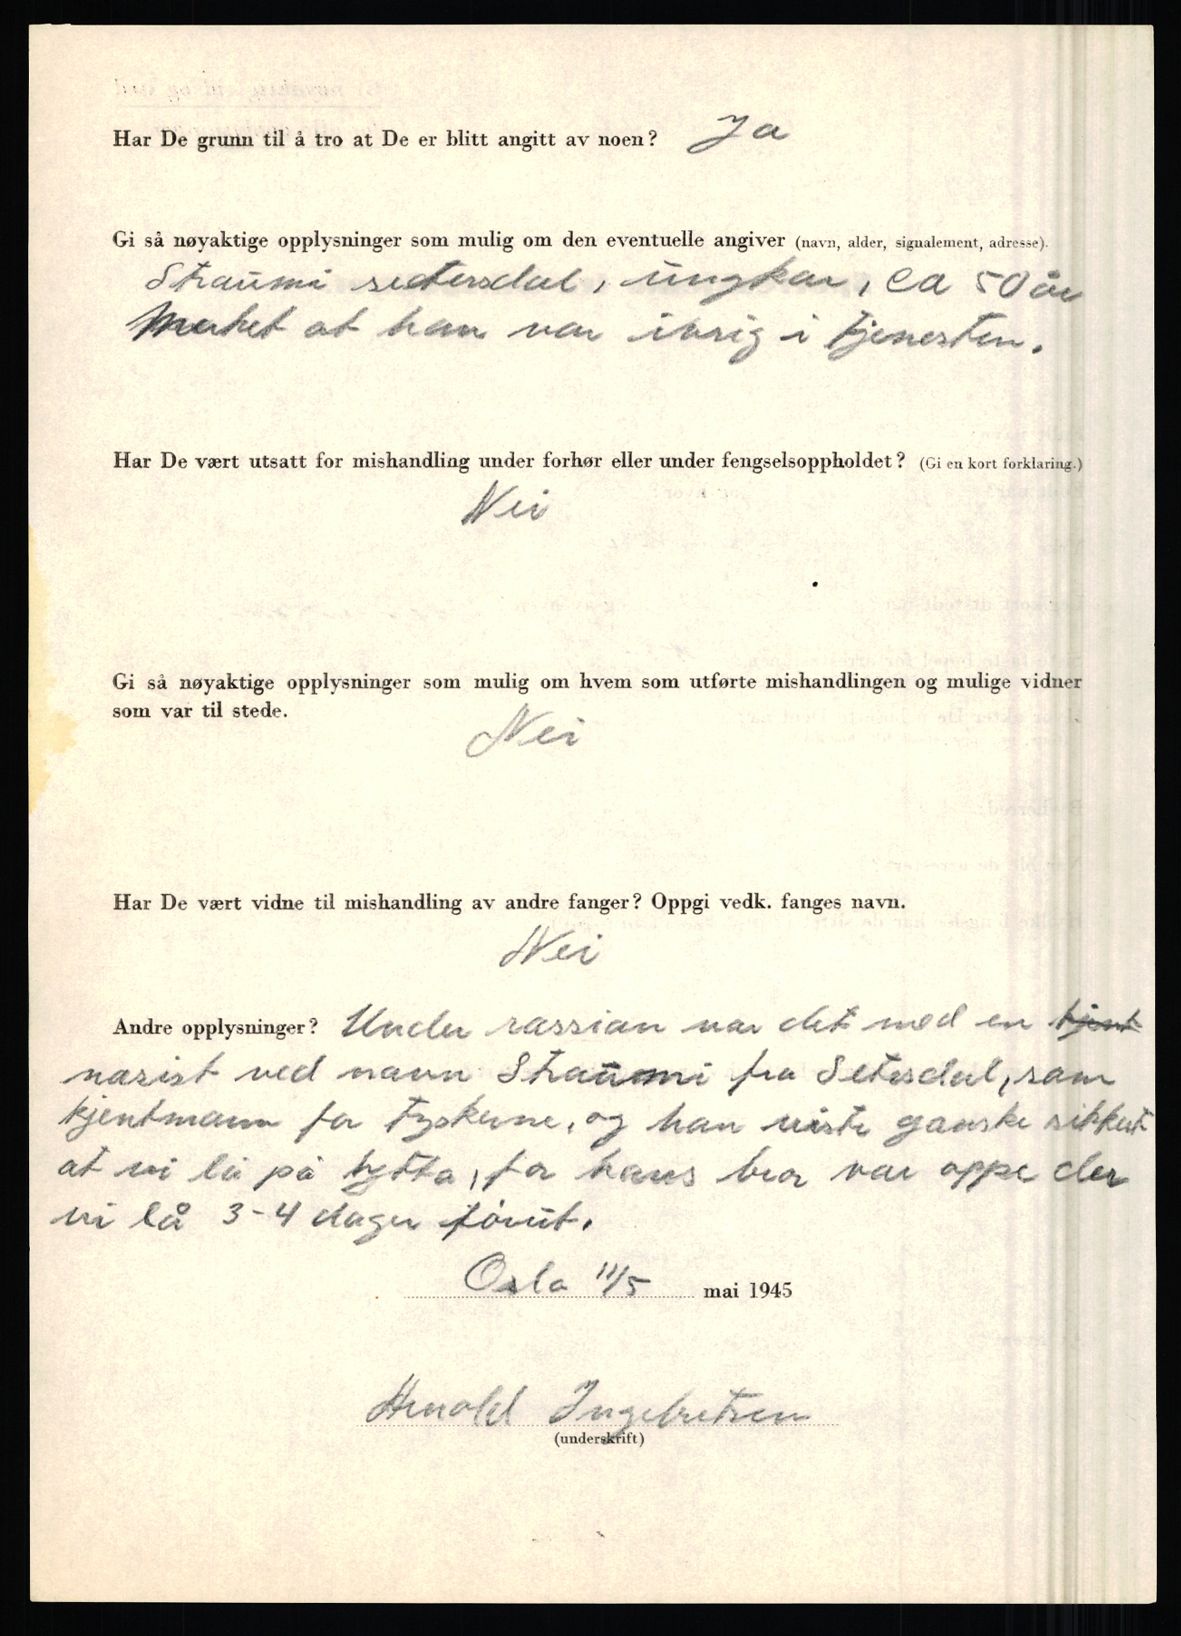 Har De grunn til å tro at De er blitt angitt av noen? Ja
Gi så nøyaktige opplysninger som mulig om den eventuelle angiver (navn, alder, signalement, adresse).
Straumi setersdal, ungkar, ca 50 år
Merket at han var ivrig i tjenesten.
Har De vært utsatt for mishandling under forhør eller under fengselsoppholdet? (Gi en kort forklaring.)
Nei
Gi så nøyaktige opplysninger som mulig om hvem som utførte mishandlingen og mulige vidner
som var til stede.
Nei
Har De vært vidne til mishandling av andre fanger? Oppgi vedk. fanges navn.
Nei
Andre opplysninger? Under rassian var det med en kjent
nasist ved navn Straumi fra Setesdal, som
kjentmann for tyskerne, og han viste ganske sikkert
at vi lå på hytta, for hans bror var oppe der
vi lå 3-4 dager forut.
Oslo 11/5 mai 1945
Arnold Ingebretsen
(underskrift)